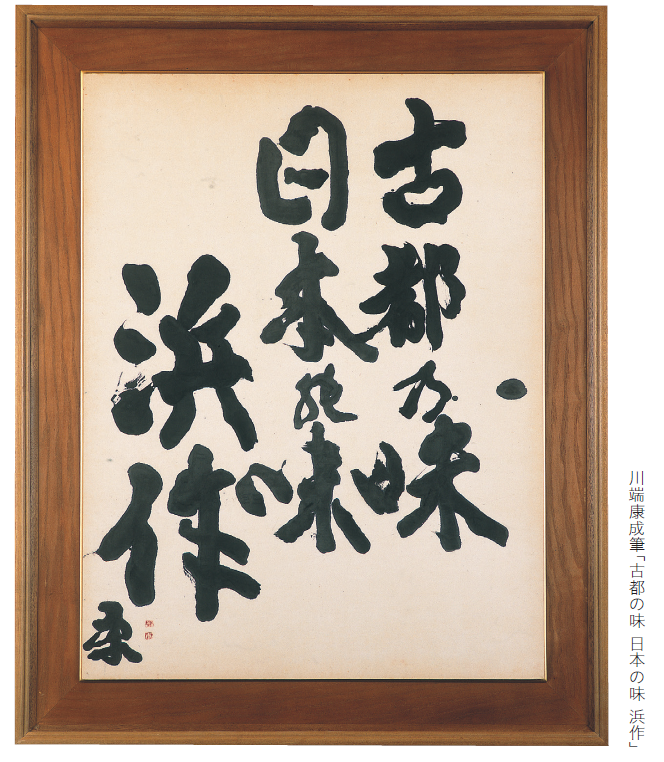 古都乃味
日本の味
浜作
川端康成筆「古都の味 日本の味 浜作」